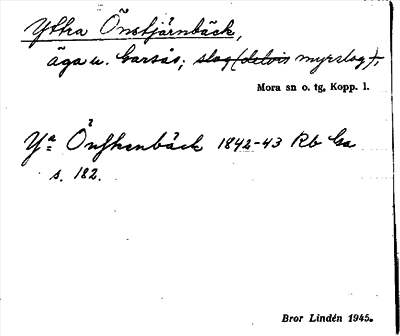 Yttra Önstjärnbäck,
äga u. Garsås; slog (delvis myrslog);
Mora sn o. tg, Kopp. l.
Yª Önskenbäck 1842-43 Rb Ga
s. 182.
Bror Lindén 1945.